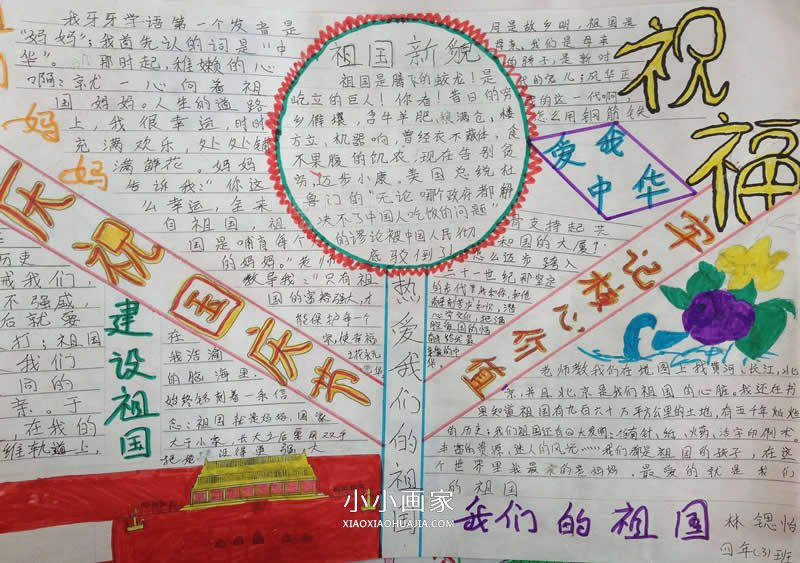 我牙牙学语第一个发音是
“妈妈”;我首先认的词是“中
华”。那时起,稚嫩的心
啊;
一心向着祖
国妈妈。人生的道路
上,我很幸运,时时
充满欢乐,处处铺
满鲜花。妈妈
告诉我:“你这
么幸运,全来
自祖国
国是哺育每个
的妈妈。”老师
教导我:“只有祖
国的富裕强大,才
能保护每一个
在
我浩瀚
的脑海里,
始终铭刻着一条信
念:祖国就是妈妈,国家
大于小家,长大之后要用双手
把她
妈
妈
庆祝国庆节
历史
戒我们,
不强盛,
后就要
打;祖国
我们
同的
亲。于
在我的
维轨道上,
建设祖国
祖国新貌
祖国是腾飞的蛟龙!是
屹立的巨人!你看!昔日的穷
乡僻壤,
牛羊肥,粮满仓,楼
方立,机器响,曾经衣不蔽体,食
不果腹的饥农,现在告别贫
穷,迈步小康。美国总统杜
鲁门的“无论哪个政府都解
决不了中国人吃饭的问题”
的谬论被中国人民彻
底驳倒了!
热爱我们的祖国
月是故乡明,祖国是
母亲。我们是母亲
的孩子,是新时
代的宠儿;风华正
的这一代啊,
怎么用钢筋铁
骨支持起共
和国的大厦?
怎么迈步跨入
二十一世纪那坚定
爱我
中华
祝福
牢记核心价值
老师教我们在地图上找黄河、长江、北
京,并且北京是我们祖国的心脏。我还在书
里知道祖国有九百六十万平方公里的土地,有五千年灿烂
的历史;我们祖国还有四大发明:指南针,给,火药,活字印刷术。
丰富的资源,迷人的风光……我们都是祖国的孩子,在这
个世界里我最亲的是妈妈,最爱的就是我们
的祖国
我们的祖国
林锶怡
四年(3)班
小小画家
XIAOXIAOHUAJIA.COM